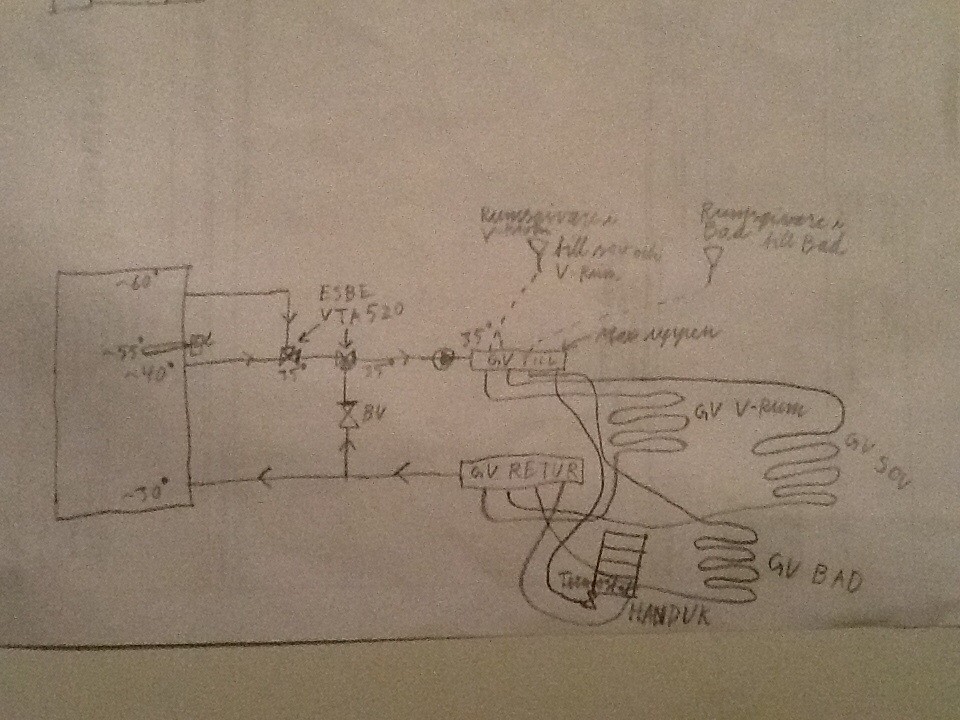 Rumsgivare i
V-Rum
till sov och
V-Rum
Rumsgivare i
Bad till Bad
~60°
ESBE
VTA520
~55°
~40°
35°
35°
35°
GV TILL
BV
GV V-RUM
GV SOV
GV RETUR
~30°
GV BAD
Termostat
HANDUK